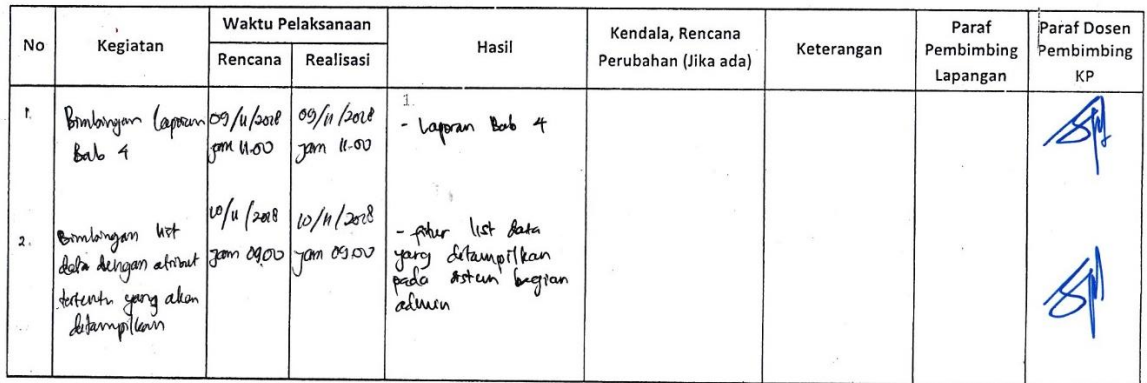 No
Kegiatan
Waktu Pelaksanaan
Rencana
Realisasi
Hasil
Kendala, Rencana
Perubahan (Jika ada)
Keterangan
Paraf
Pembimbing
Lapangan
Paraf Dosen
Pembimbing
KP
1.
Bimbingan laporan
Bab 4
09/11/2018
jam 11.00
09/11/2018
jam 11.00
1.
- laporan Bab 4
2.
Bimbingan list
data dengan atribut
tertentu yang akan
ditampilkan
10/11/2018
jam 09.00
10/11/2018
jam 09.00
- fitur list data
yang ditampilkan
pada sistem bagian
admin